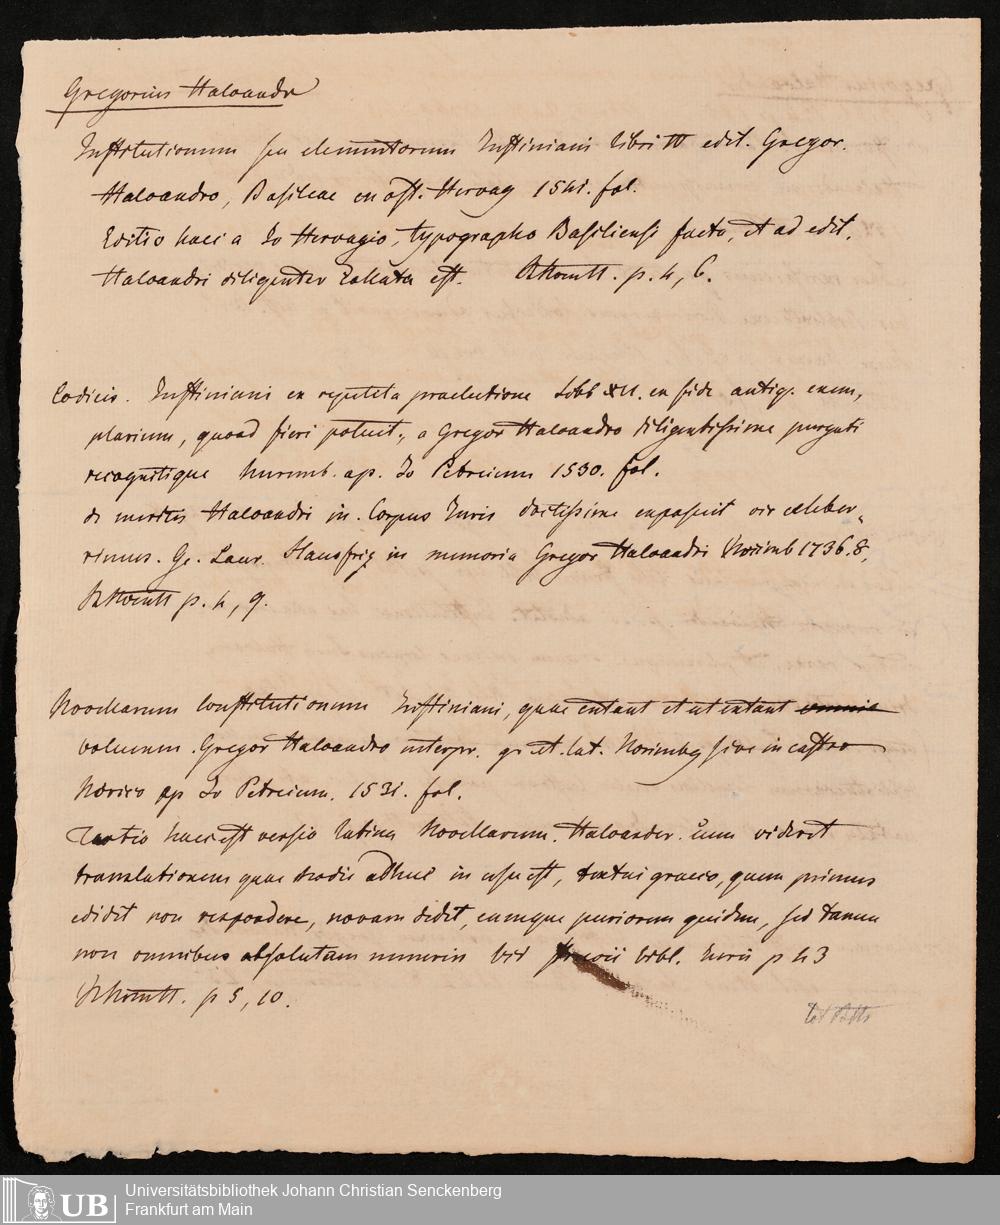 Gregorius Haloander
Institutionum seu elementorum Justiniani libri IV edit. Gregor.
Haloandro, Basileae ex off. Hervag 1541. fol.
Editio haec a Jo Hervagio, typographo Basiliensi facta, et ad edit.
Haloandri diligenter est. p. 4, 6.
Codicis. Justiniani ex repetita praelectione Libb XII. ex fide antiq. exem,
plarium, quoad fieri potuit, a Gregor Haloandro diligentissime purgati
recognitique Nuremb. ap. Jo Petreium 1530. fol.
de meritis Haloandri in. Corpus Juris doctissime exposuit vir celeber„
rimus. Ge. Laur. in memoria Gregor Haloandri Norimb 1736. 8,
p. 4, 9.
Novellarum Constitutionum Justiniani, quae extant et ut extant omnia
volumen. Gregor Haloandro interpr. gr. et. lat. Norimbg sive in castro
Norico ap Jo Petreium. 1531. fol.
Tertio haec est versio latina Novellarum. Haloander. cum videret
translationem quae hodie adhuc in usu est, textui graeco, quem primus
edidit non respondere, novam dedit, eamque puriorem quidem, sed tamen
non omnibus absolutam numeris vid bibl. Juris p 43
p 5, 10.